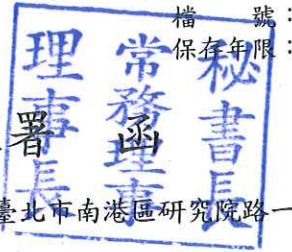 檔　　號：
保存年限：
秘書長
常務理事
理事長
署　函
臺北市南港區研究院路一